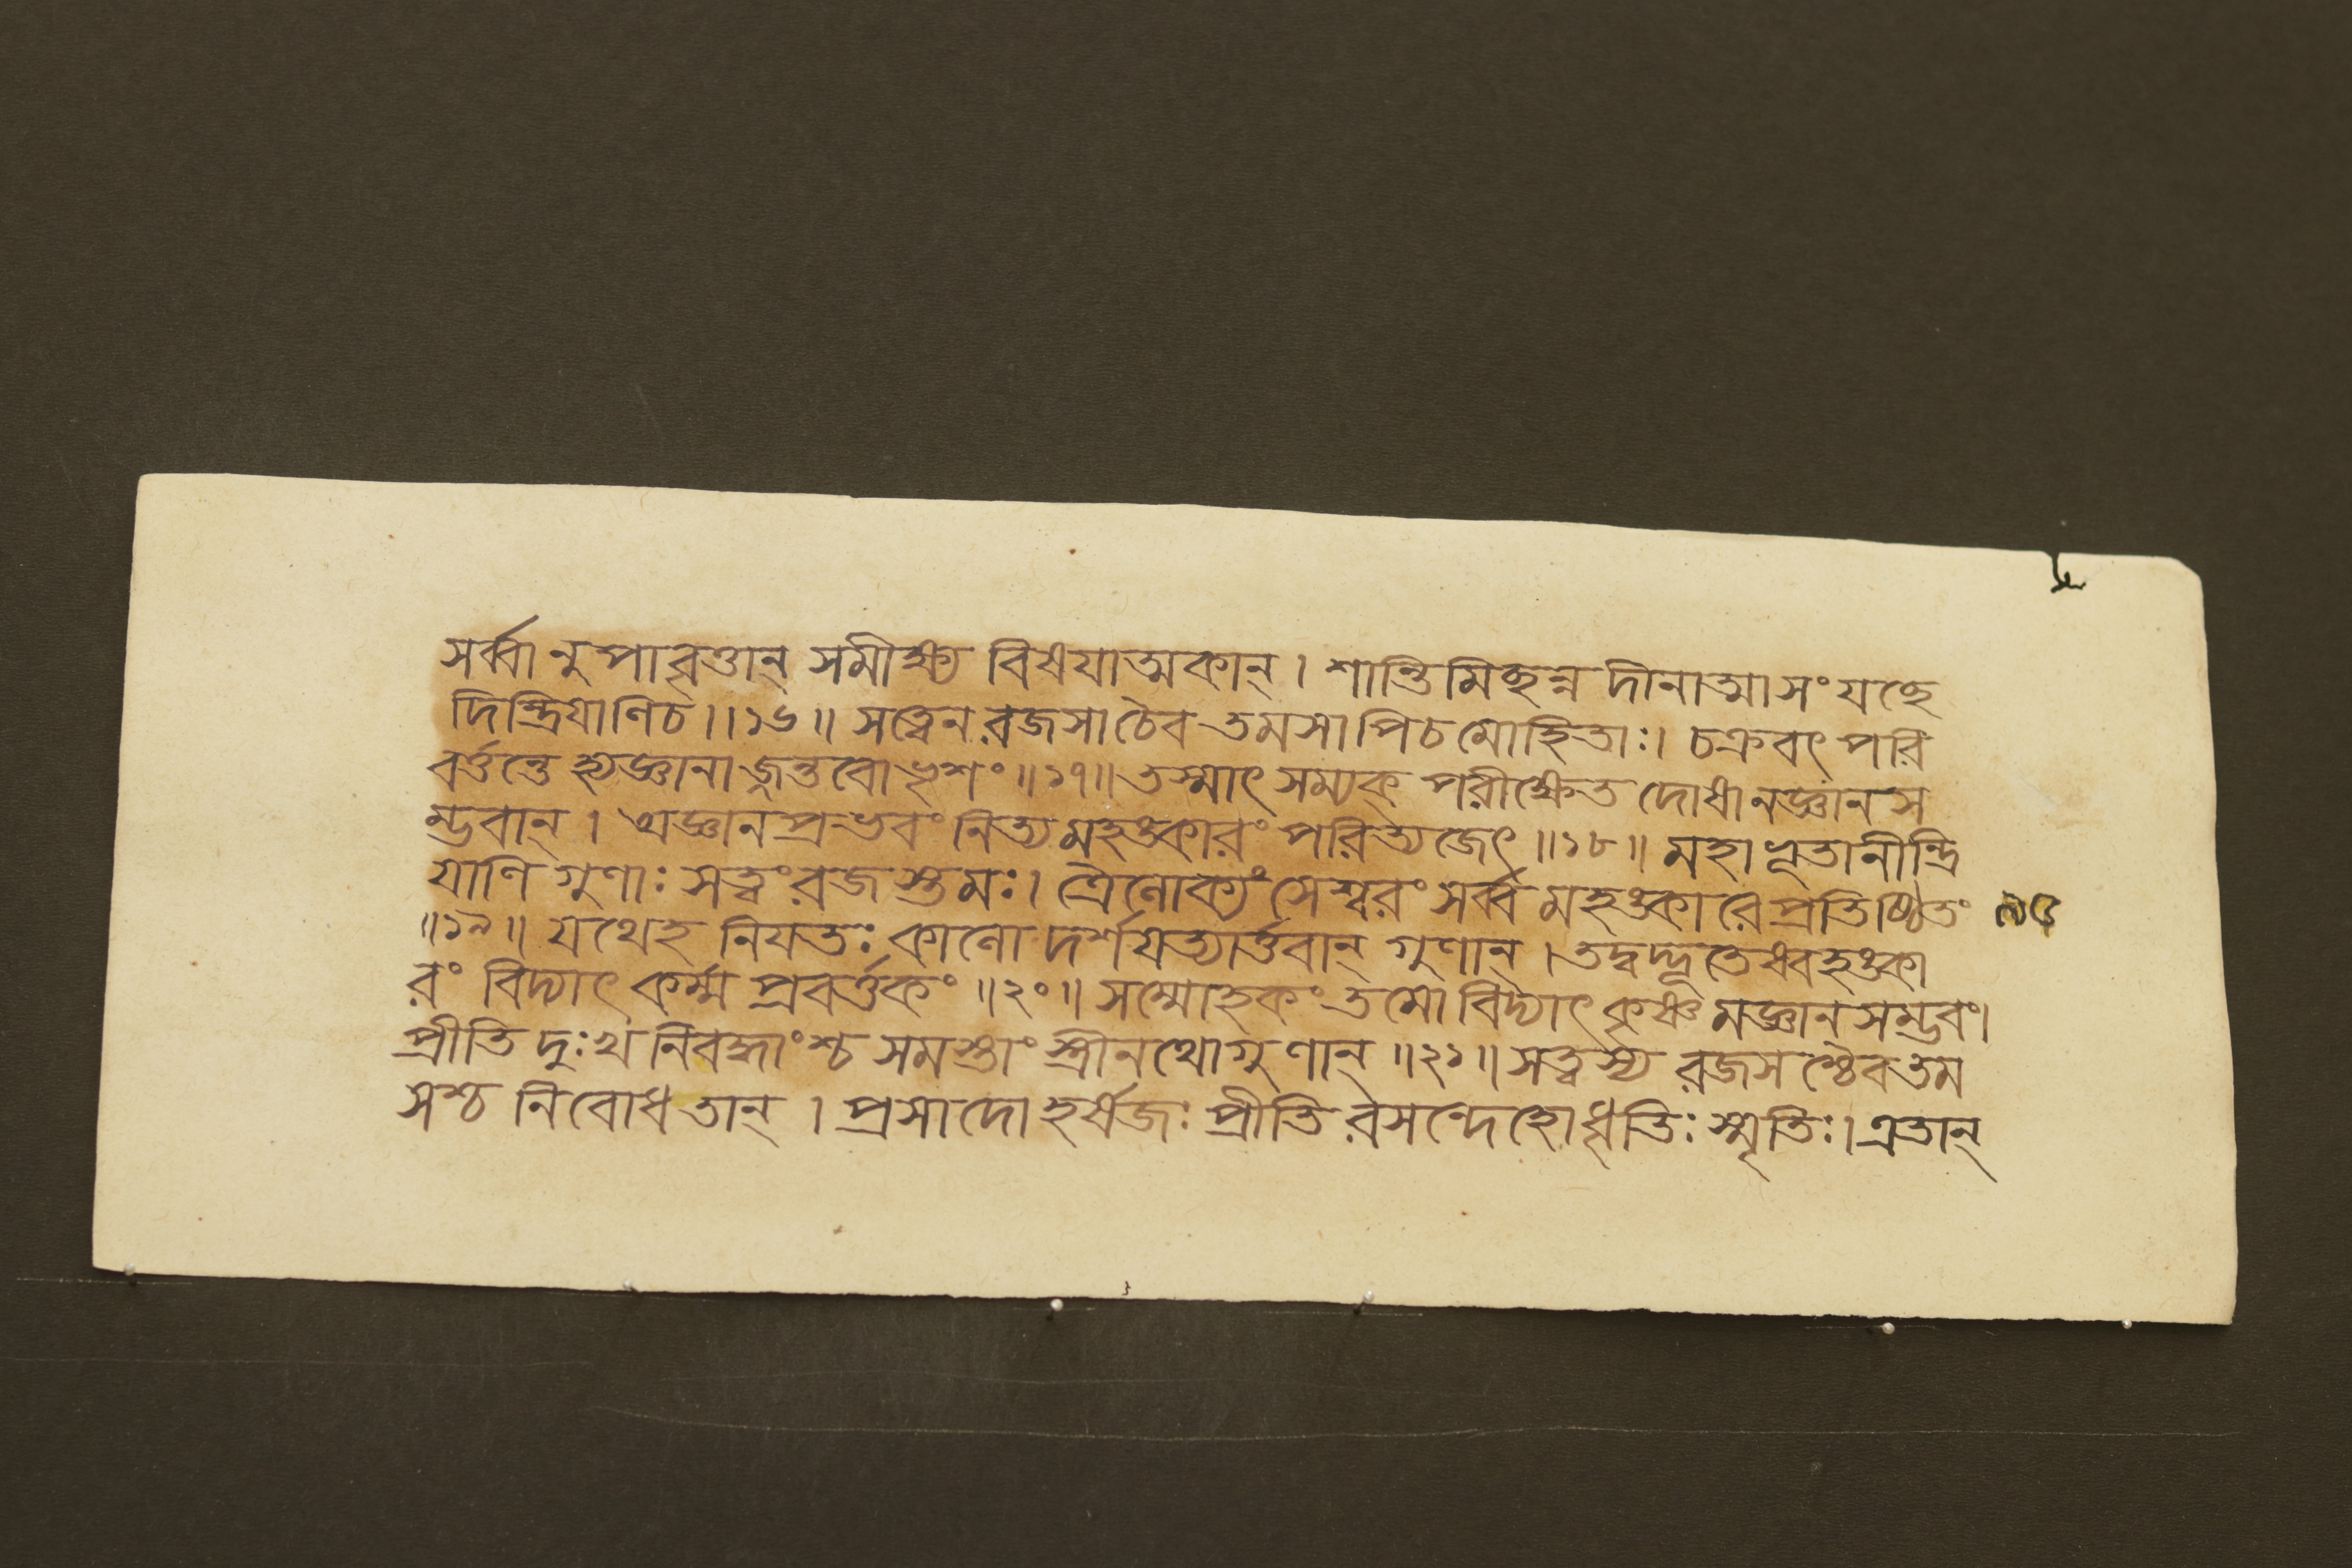 সর্ব্বানুপাবৃত্তান্ সমীক্ষ্য বিষয়াত্মকান্। শান্তিমিচ্ছন্নদীনাত্মা সংযচ্ছে
দিন্দ্রিয়াণিচ॥১৬॥ সত্ত্বেন রজসা চৈব তমসাপিচমোহিতাঃ। চক্রবৎ পরি
বর্ত্তন্তে হ্যজ্ঞানাজ্জন্তবোভৃশং॥১৭॥ তস্মাৎ সম্যক্ পরীক্ষেত দোষানজ্ঞানস
ম্ভবান্। অজ্ঞানপ্রভবং নিত্যমহঙ্কারং পরিত্যজেৎ॥১৮॥ মহাভূতানীন্দ্রি
য়াণি গুণাঃ সত্ত্বং রজস্তমঃ। ত্রৈলোক্যং সেশ্বরং সর্ব্বমহঙ্কারেপ্রতিষ্ঠিতং
॥১৯॥ যথেহ নিয়তঃ কালো দর্শয়ত্যার্ত্তবান্ গুণান্। তদ্বদ্ভূতেষ্বহঙ্কা
রং বিদ্যাৎ কর্ম্মপ্রবর্ত্তকং॥২০॥ সম্মোহকং তমো বিদ্যাৎ কৃষ্ণমজ্ঞানসম্ভবং।
প্রীতিদুঃখনিবদ্ধাংশ্চ সমস্তাংস্ত্রীনথোগুণান্॥২১॥ সত্ত্বস্য রজসশ্চৈবতম
সশ্চ নিবোধতান্। প্রসাদোহর্ষজঃ প্রীতিরসন্দেহোধৃতিঃ স্মৃতিঃ। এতান্